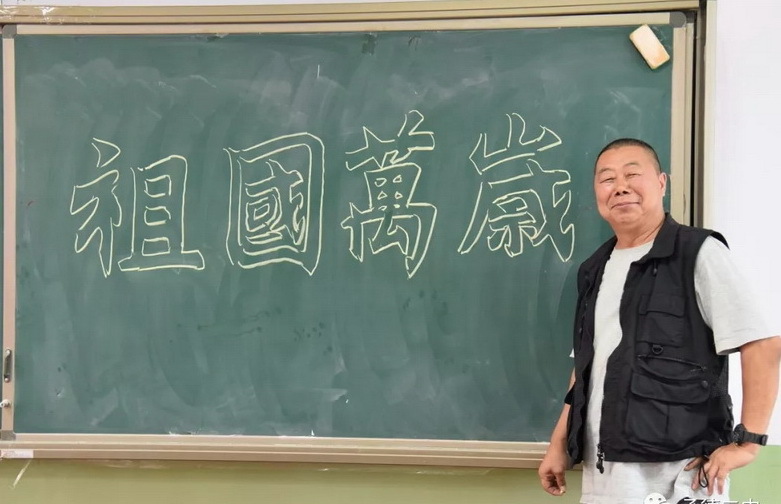 祖國萬歲